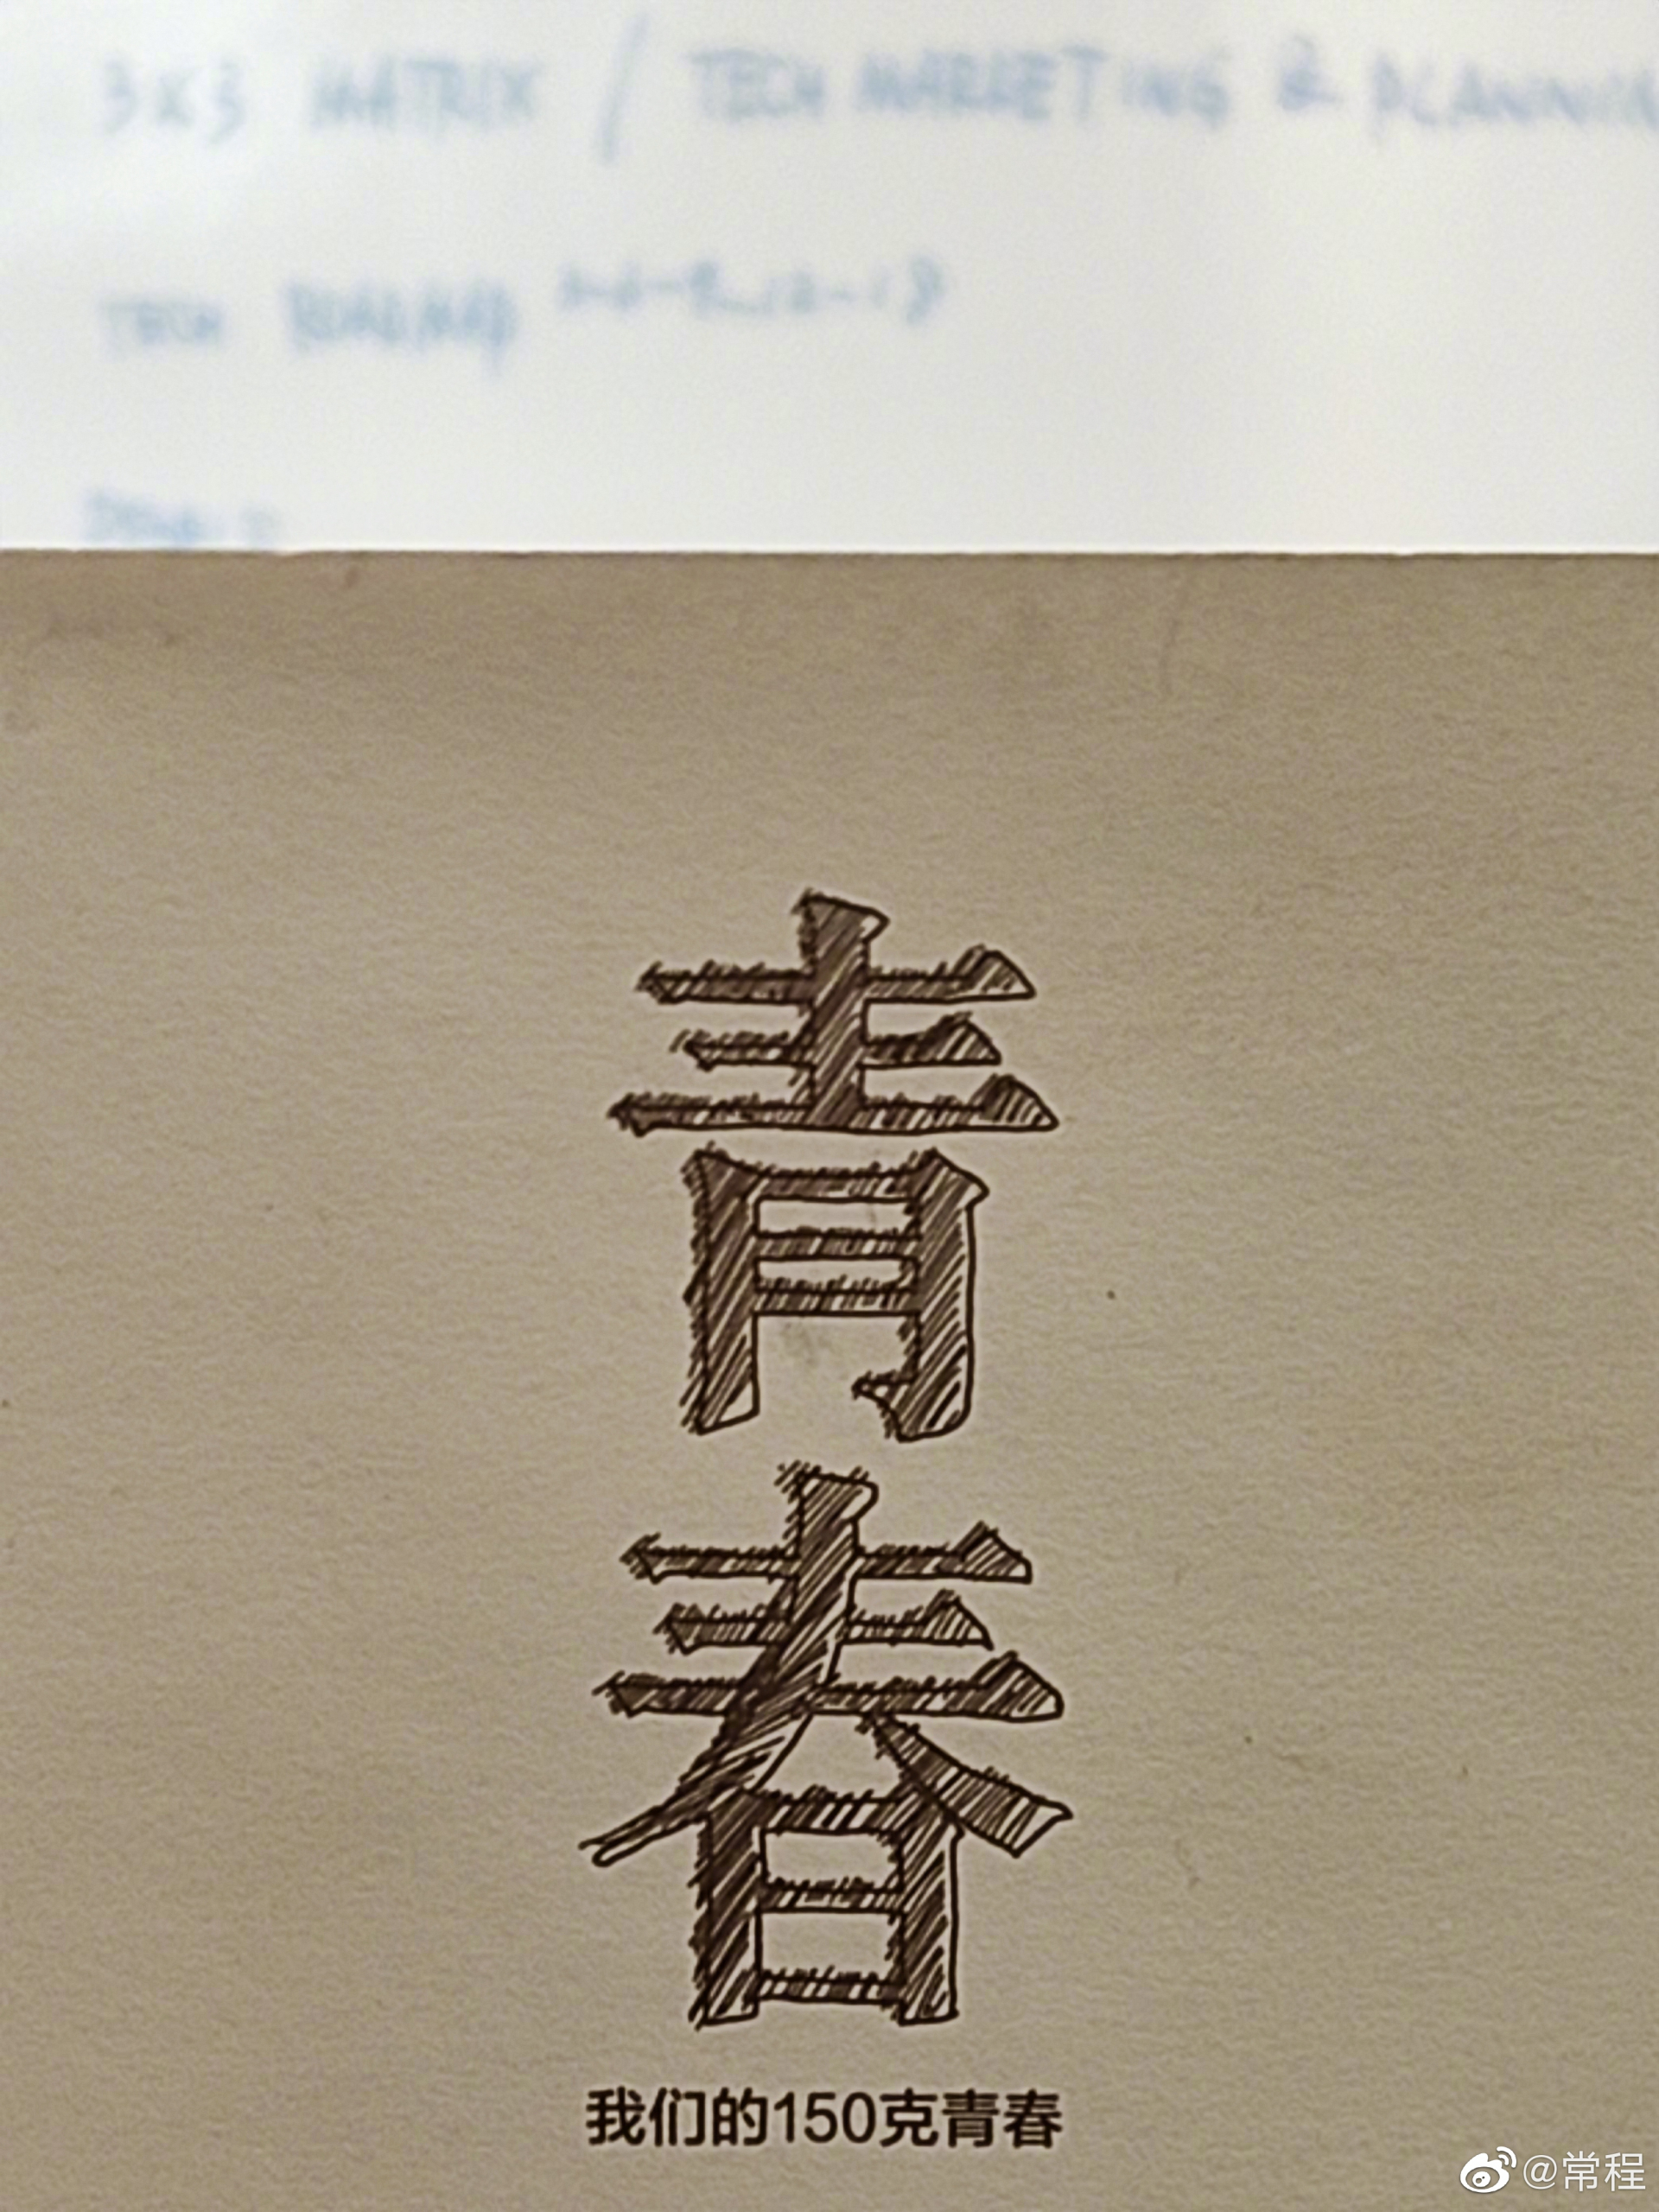 3x3 MATRIX / TECH MARKETING & PLANNIN
TECH ROADMAP
青
春
我们的150克青春
@常程